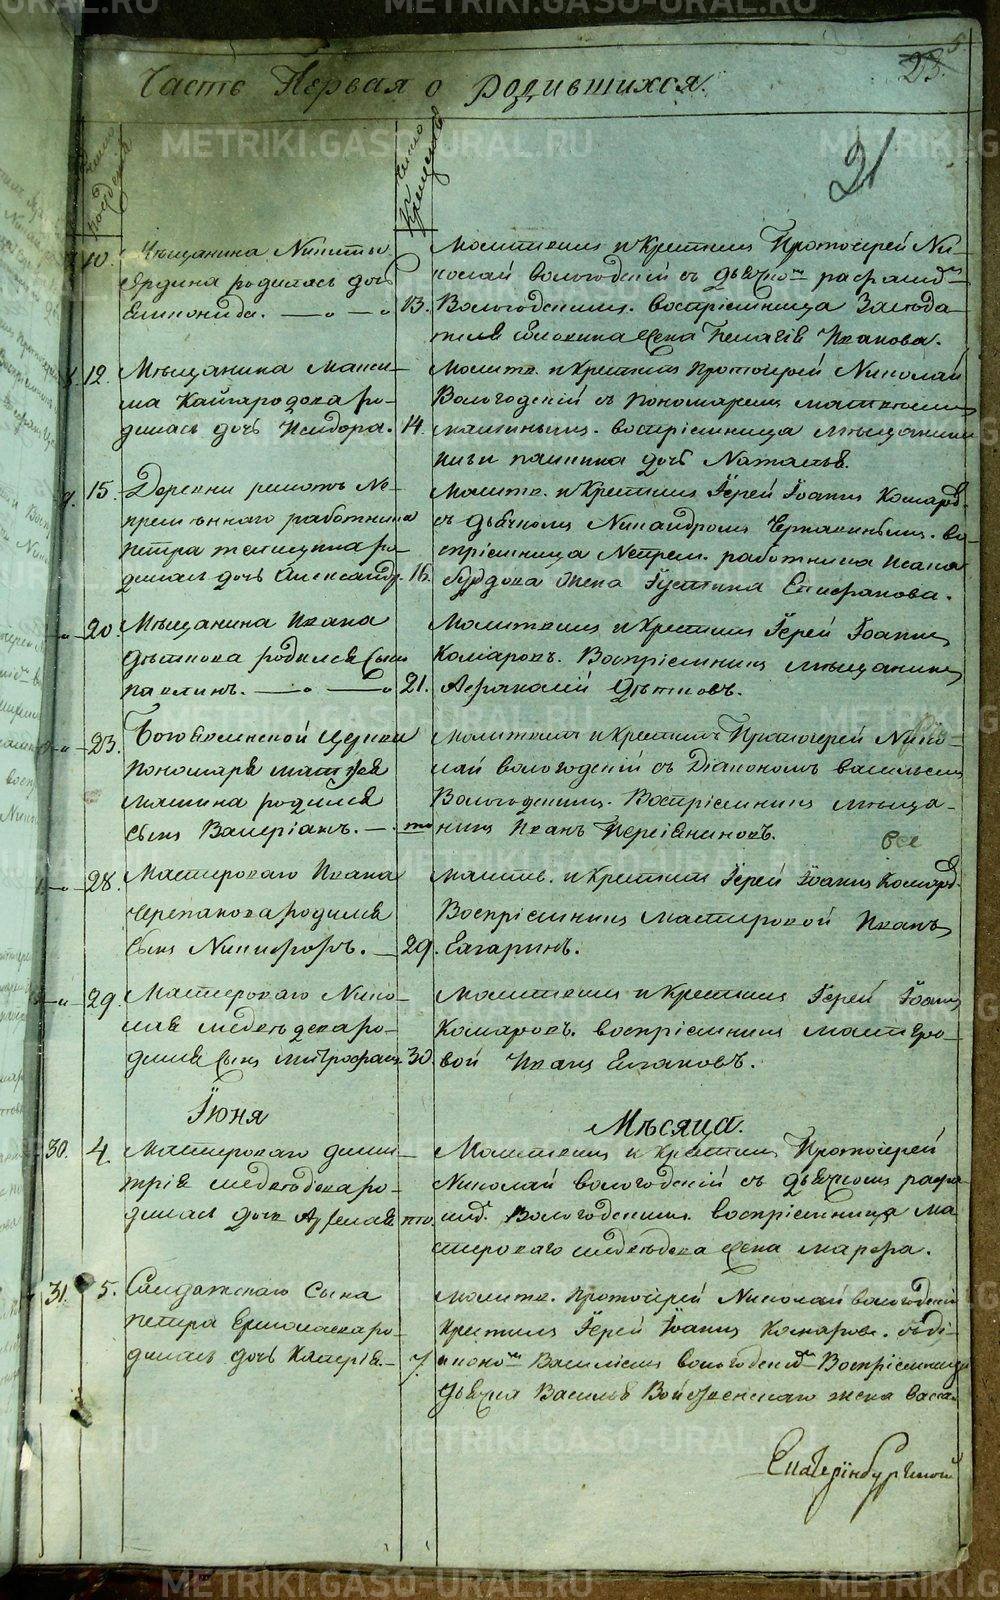 Часть Первая о родившихся.
5
23.
21
Число рождения
Число Крещения
10. Мещанина Никиты
Ярдина родилась дочь
Еликонида. 13.
Молитвилъ и Крестилъ Протоіерей Ни-
колай Вологодскій съ дьячко^м рафаил^м
Вологодскимъ. воспріемница Заклада-
жена Пелагія Иванова.
12. Мѣщанина Макси-
ма Кайгародова ро-
дилась дочь Исидора. 14.
Молитв. и Крестилъ Протоіерей Николай
Вологодскій съ Пономаремъ матвѣемъ
мамиымъ. воспріемница мѣщанини
дочь Наталья.
15. Деревни решотъ Не-
премѣннаго работника
петра ро-
дилась дочь Александр. 16.
Молитв. и Крестилъ Іерей Іоаннъ Комаров.
съ дьячкомъ Никандромъ. во-
спріемница Непрем. работника Исака
Бурдова жена Густинна Епифанова.
20. Мѣщанина Ивана
дѣткова родился Сынъ
павлинъ. 21.
Молитвилъ и Крестилъ Іерей Іоаннъ
Комаровъ. Воспріемникъ мѣщанинъ
Афанасій Дѣтковъ.
23. Богоявленской Церкви
Пономаря матвея
мамина родился
сынъ Валеріанъ. то
Молитвилъ и Крестилъ Протоіерей Нико-
лай Вологодскій съ Діакономъ васильемъ
Вологодскимъ. Воспріемникъ мѣща-
нинъ Иванъ Перевянинковъ.
все
28. Мастероваго Ивана
Черепанова родился
сынъ Никифоръ. 29.
Молитв. и Крестилъ Іерей Іоаннъ Комаров.
Воспріемникъ Мастеровой Иванъ
Гагаринъ.
29. Мастероваго Нико-
лая медвѣдева ро-
дился сынъ Митрофанъ 30.
Молитвилъ и Крестилъ Іерей Іоаннъ
Комаровъ. воспріемникъ мастеро-
вой Иванъ Елаковъ.
Іюня Мѣсяца.
30. 4. Мастероваго дими-
трія медвѣдева ро-
дилась дочь Агрелая то.
Молитвилъ и Крестилъ Протоіерей
Николай Вологодскій съ дьячкомъ рафа-
ил. Вологодскимъ. воспріемница ма-
стероваго медвѣдева жена марфа.
31. 5. Солдатскаго Сына
петра Ермолаева ро-
дилась дочь Кипрія. 7.
молитв. Протоіерей Николай вологодскій
Крестилъ Іерей Іоаннъ Комаровъ. съ ді-
аконо^м Василіемъ вологодски^м Воспріемница
дьячка Василья Войзвенскаго жена васса.
Екатеринбургской
METRIKI.GASO-URAL.RU